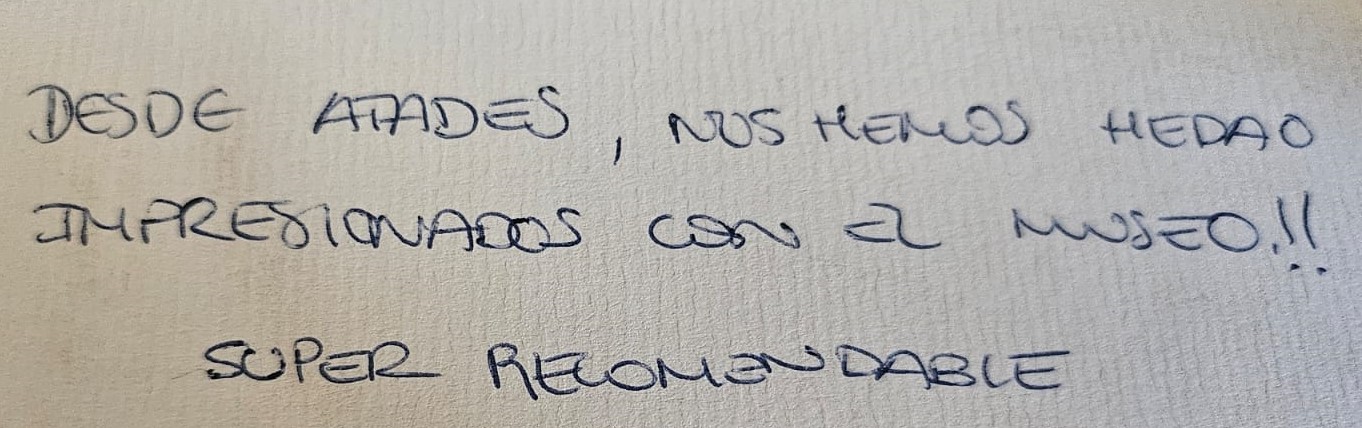 DESDE ATADES, NOS HEMOS HEDAO
IMPRESIONADOS CON EL MUSEO.!!
SUPER RECOMENDABLE